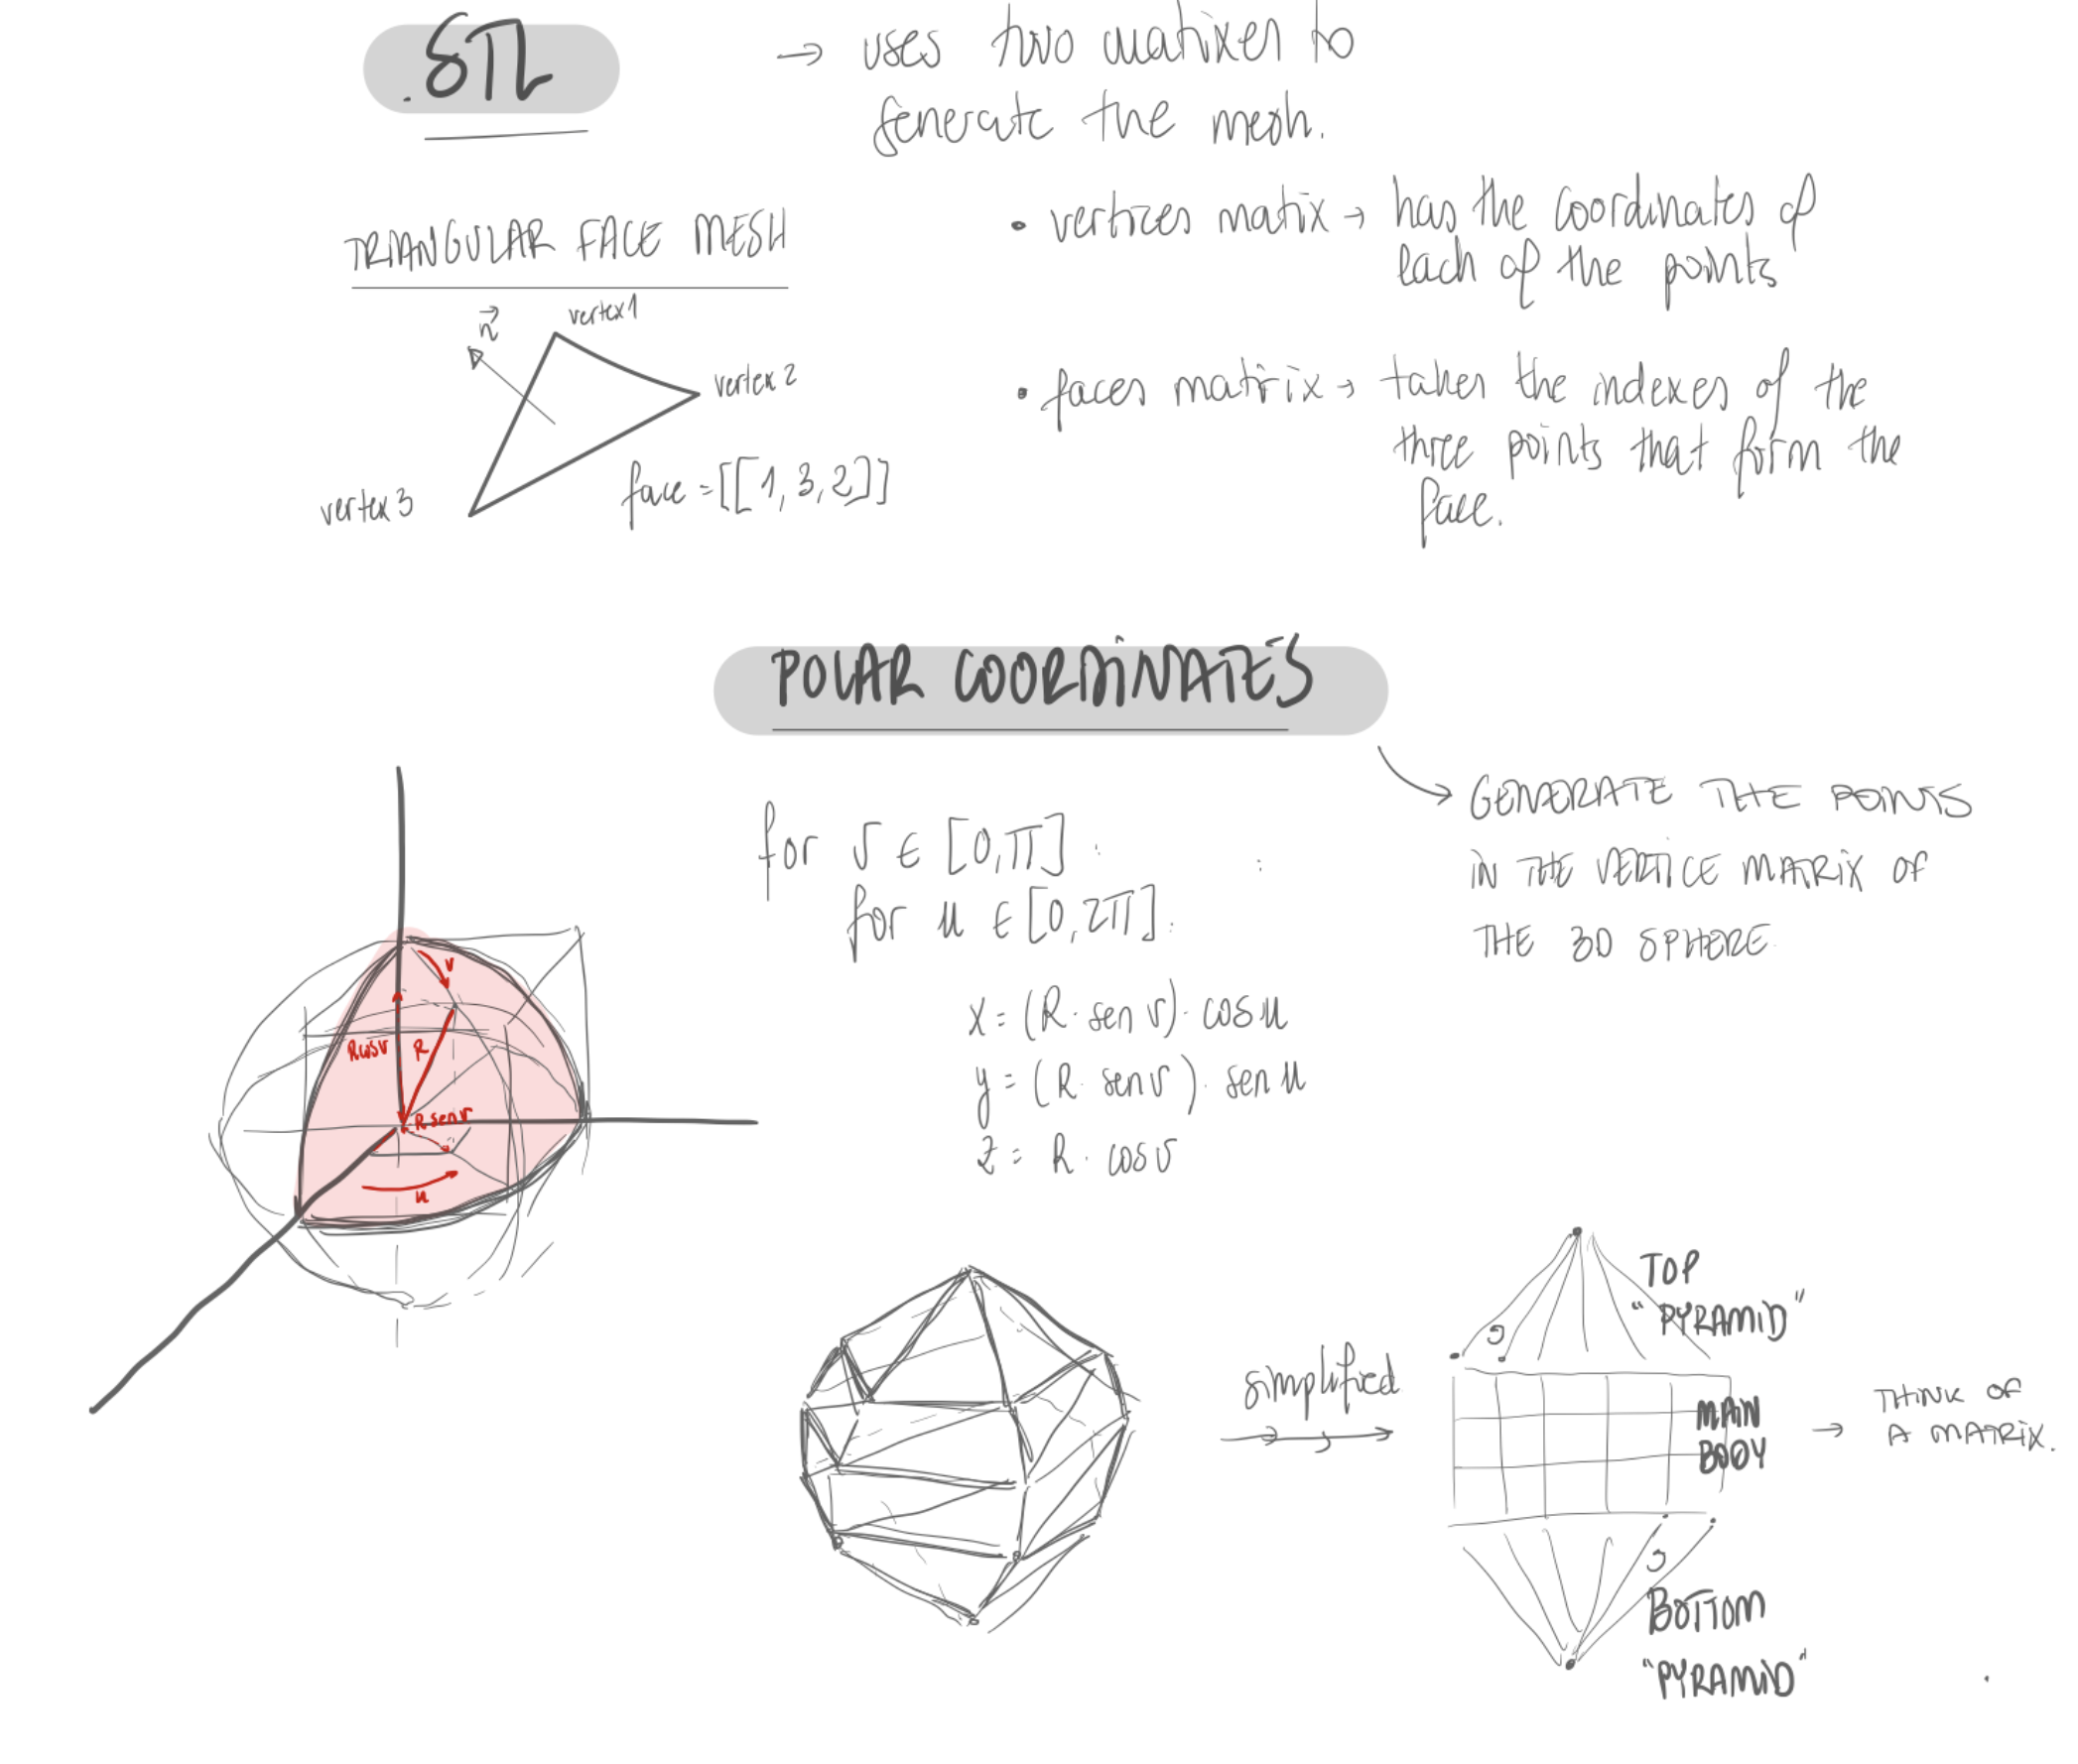 .STL
→ uses two matixes to
generate the mesh.
TRIANGULAR FACE MESH
n
vertex 1
vertex 2
vertex 3
face = [[1, 3, 2]]
• vertices matix → has the coordinates of
each of the points
• faces matrix → takes the indexes of the
three points that form the
face.
POLAR COORDINATES
GENERATE THE POINTS
IN THE VERTICE MATRIX OF
THE 3D SPHERE
for v ∈ [0, π] :
for u ∈ [0, 2π] :
x = (R · sen v) · cos u
y = (R · sen v) · sen u
z = R · cos v
v
R cos v
R
R sen v
u
simplified
TOP
"PYRAMID"
MAIN
BODY
→ THINK OF
A MATRIX.
BOTTOM
"PYRAMID"